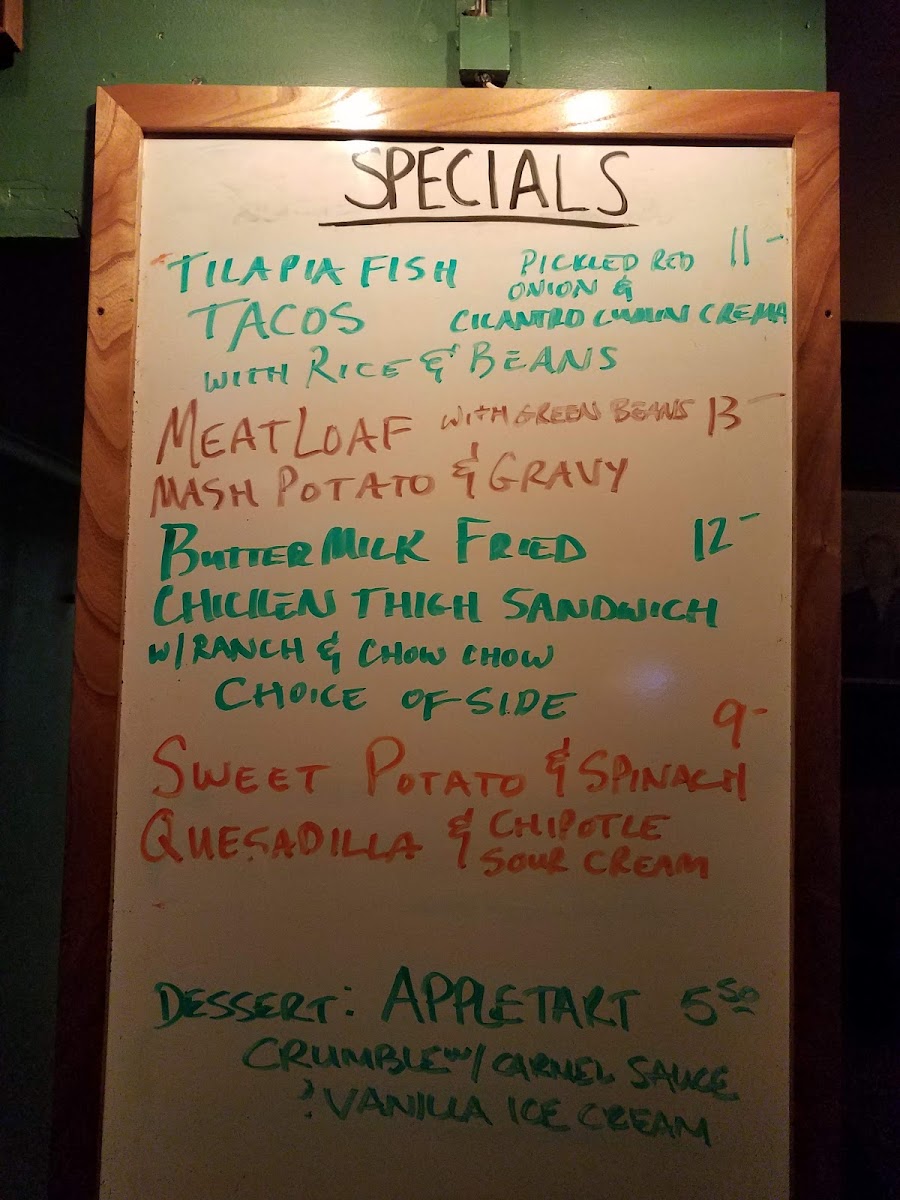 SPECIALS
TILAPIA FISH PICKLED RED 11-
ONION &
TACOS CILANTRO CUMIN CREMA
WITH RICE & BEANS
MEATLOAF WITH GREEN BEANS 13-
MASH POTATO & GRAVY
BUTTERMILK FRIED 12-
CHICKEN THIGH SANDWICH
W/RANCH & CHOW CHOW
CHOICE OF SIDE
9-
SWEET POTATO & SPINACH
QUESADILLA & CHIPOTLE
SOUR CREAM
DESSERT: APPLETART 5 50
CRUMBLE W/ CARMEL SAUCE
& VANILLA ICE CREAM